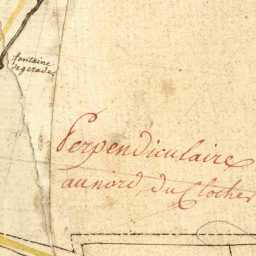 fontaine
degerades
Perpendiculaire
au nord du Clocher